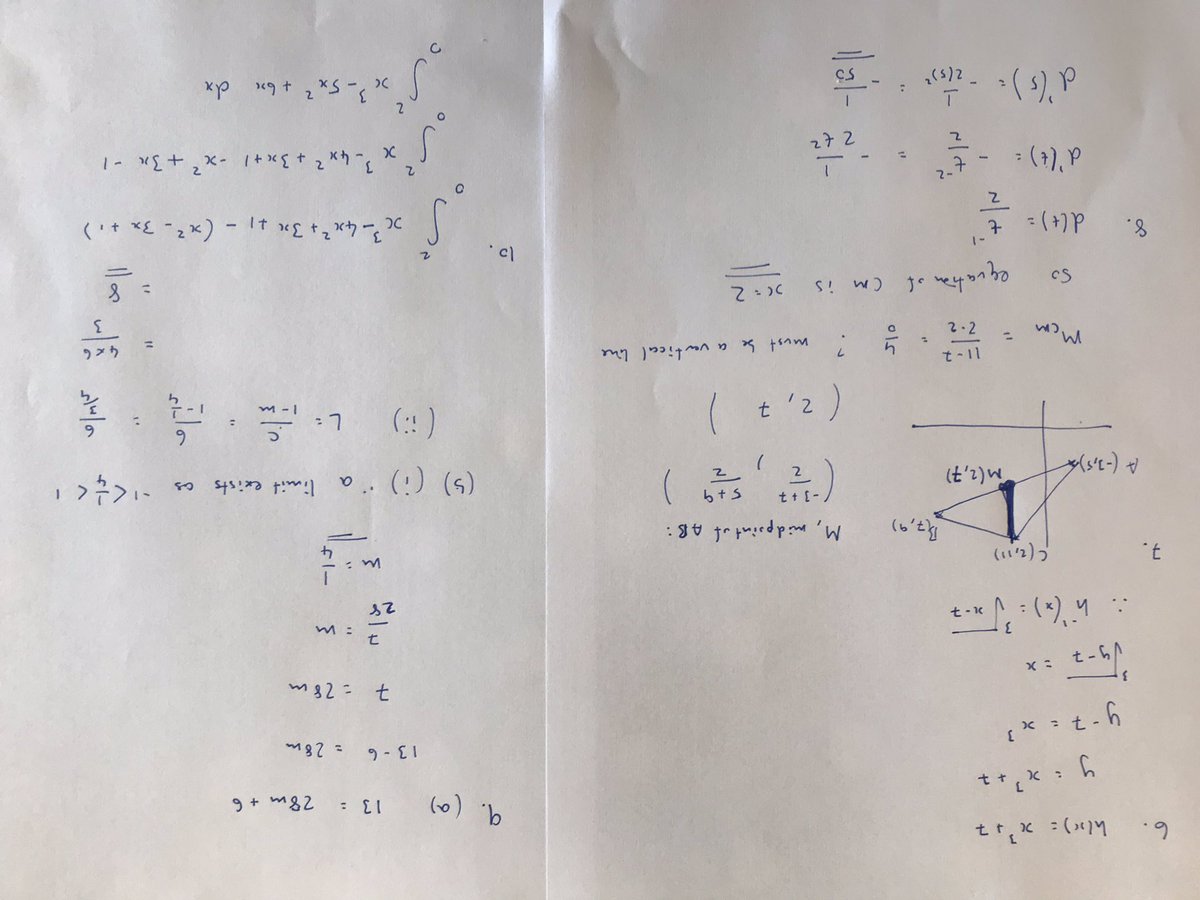 6. h(x) = x³ + 7
y = x³ + 7
y - 7 = x³
³√y-7 = x
∵ h⁻¹(x) = ³√x-7
7.
C(2,11)
B(7,9)
M(2,7)
A(-3,5)
M, midpoint of AB:
( -3+7/2 , 5+9/2 )
( 2, 7 )
M_CM = 11-7/2-2 = 4/0 ? must be a vertical line
so equation of CM is x = 2
8. d(t) = t⁻¹/2
d'(t) = - t⁻²/2 = - 1/2t²
d'(5) = - 1/2(5)² = - 1/50
9. (a) 13 = 28m + 6
13 - 6 = 28m
7 = 28m
7/28 = m
m = 1/4
(b) (i) a limit exists as -1 < 1/4 < 1
(ii) L = c/1-m = 6/1-1/4 = 6/3/4
= 4×6/3
= 8
10. ∫₀² x³ - 4x² + 3x + 1 - (x² - 3x + 1)
∫₀² x³ - 4x² + 3x + 1 - x² + 3x - 1
∫₀² x³ - 5x² + 6x dx